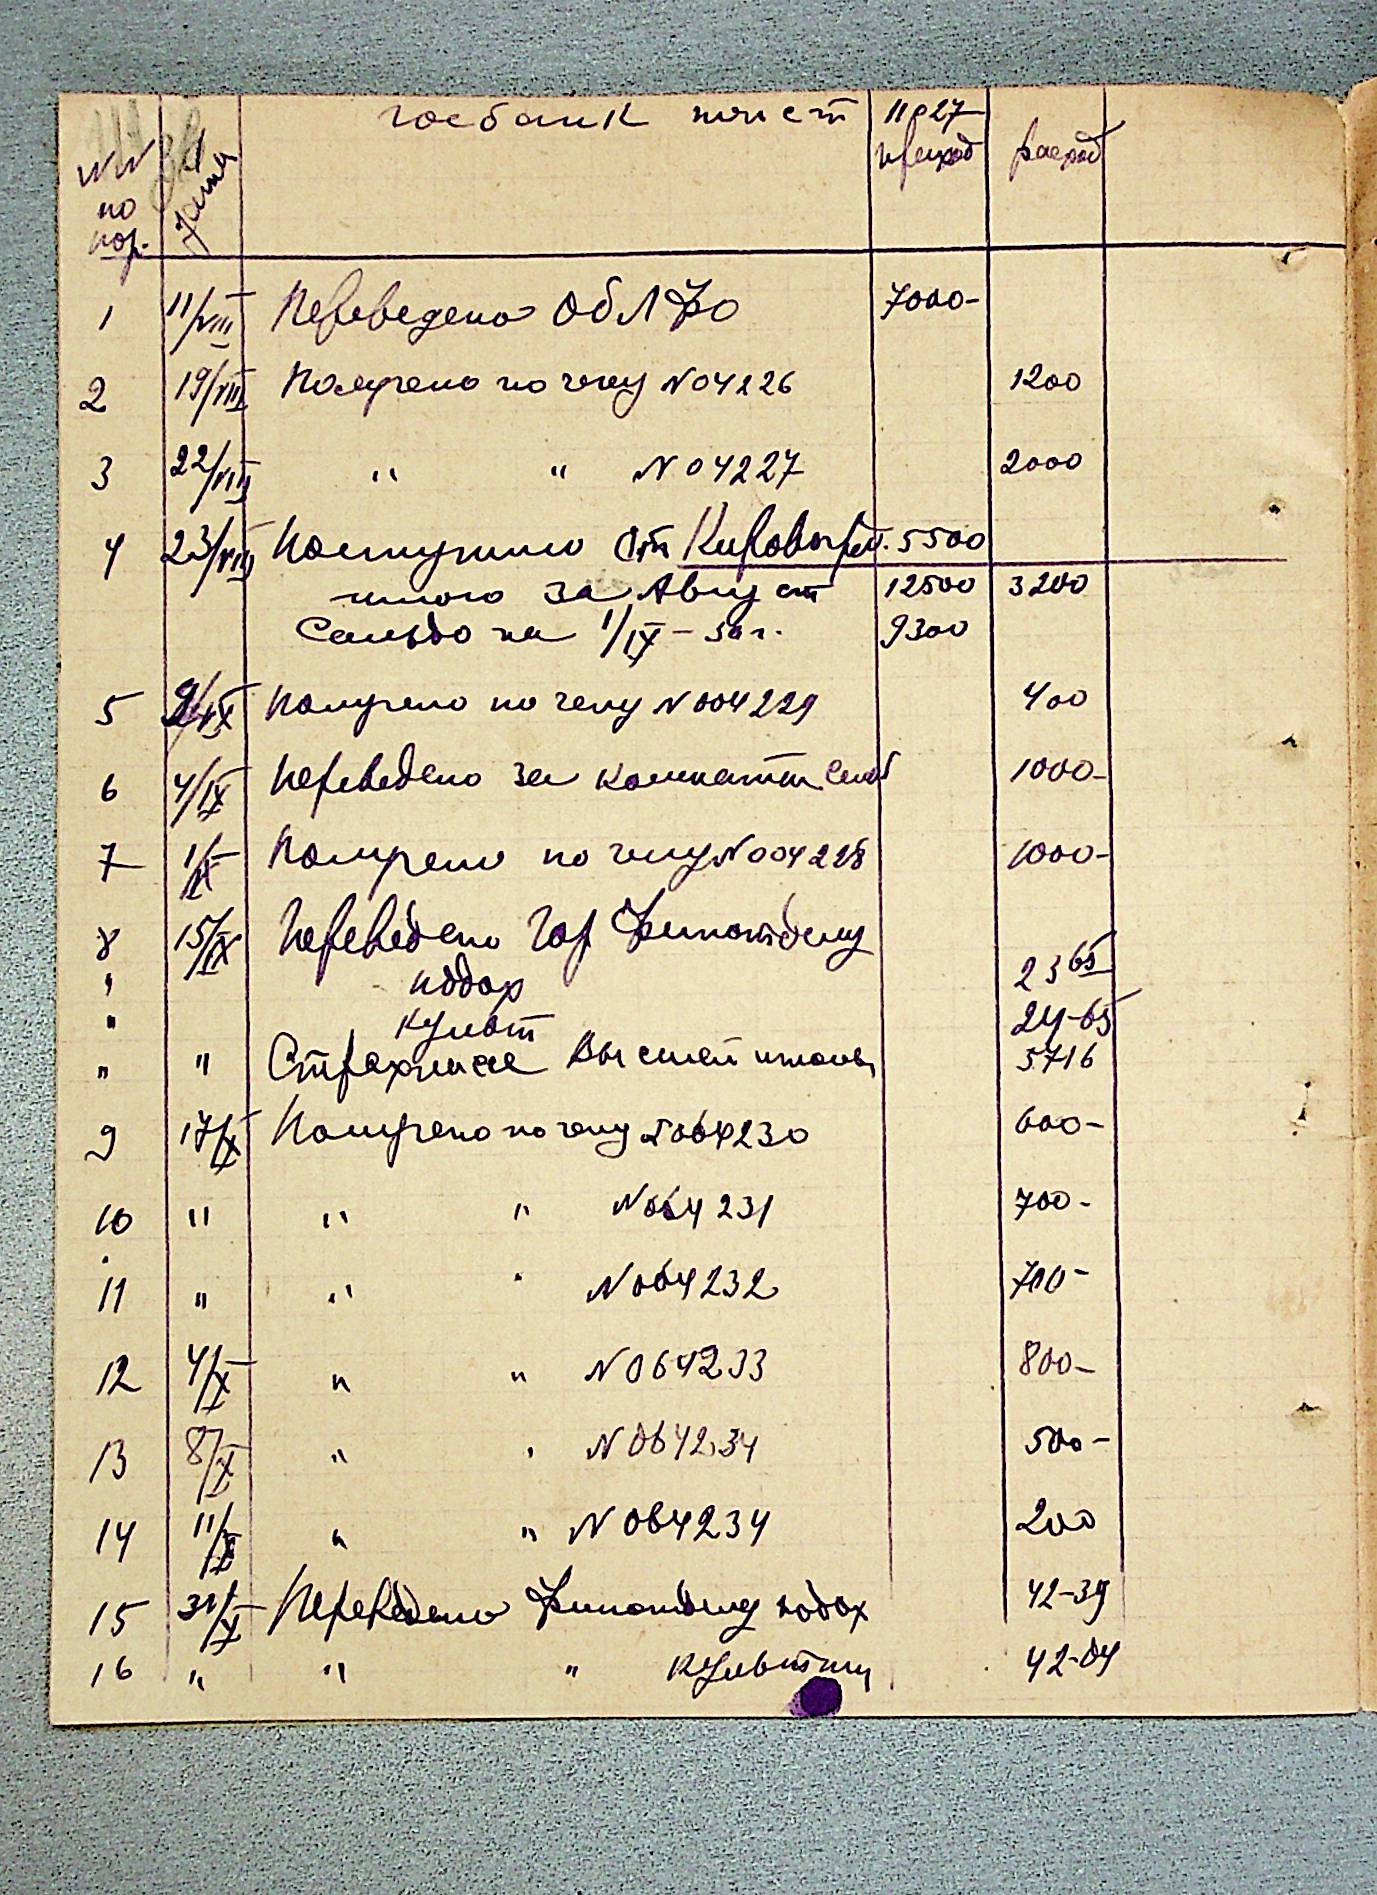 Госбанк 11027
NN по пор. Дата приход расход
1 11/VIII Переведено ОблФО 7000-
2 19/VIII Получено по чеку N 04226 1200
3 22/VIII " " N 04227 2000
4 23/VIII Поступило от 5500
итого за Август 12500 3200
Сальдо на 1/IX-50 г. 9300
5 2/IX Получено по чеку N 004229 400
6 4/IX Переведено за 1000-
7 1/IX Получено по чеку N 004228 1000-
8 15/IX Переведено Гор Финотделу
" подох 23 65
" культ 24-65
" " 5716
9 17/IX Получено по чеку 064230 600-
10 " " " N 064231 700-
11 " " " N 064232 700-
12 4/X " " N 064233 800-
13 8/X " " N 064234 500-
14 11/X " " N 064234 200
15 31/X Переведено Финотделу подох 42-39
16 " " " культ 42-04